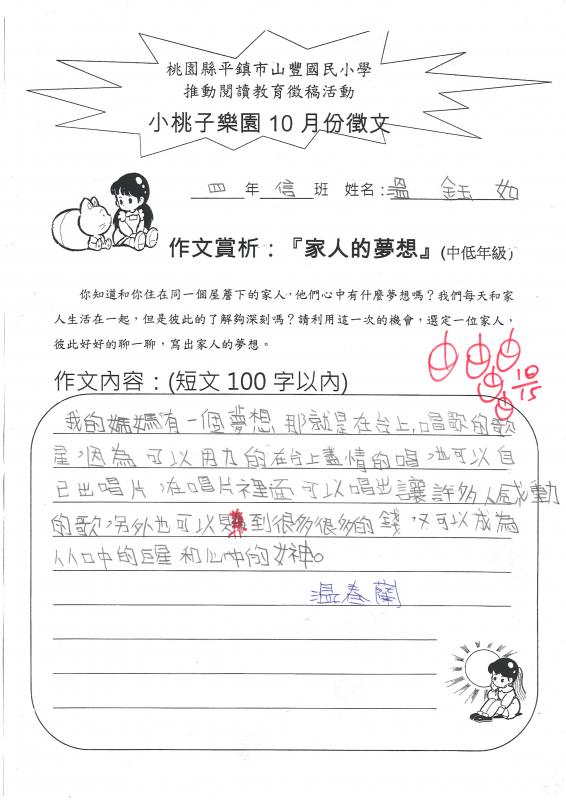 桃園縣平鎮市山豐國民小學
推動閱讀教育徵稿活動
小桃子樂園10月份徵文
四年信班 姓名:溫鈺如
作文賞析:『家人的夢想』(中低年級)
你知道和你住在同一個屋簷下的家人,他們心中有什麼夢想嗎?我們每天和家
人生活在一起,但是彼此的了解夠深刻嗎?請利用這一次的機會,選定一位家人,
彼此好好的聊一聊,寫出家人的夢想。
作文內容:(短文100字以內)
10/15
我的媽媽有一個夢想,那就是在台上,唱歌的歌
星,因為可以用力的在台上盡情的唱,也可以自
己出唱片,在唱片裡面可以唱出讓許多人感動
的歌,另外也可以賺到很多很多的錢,又可以成為
人人口中的巨星和心中的女神。
溫春蘭